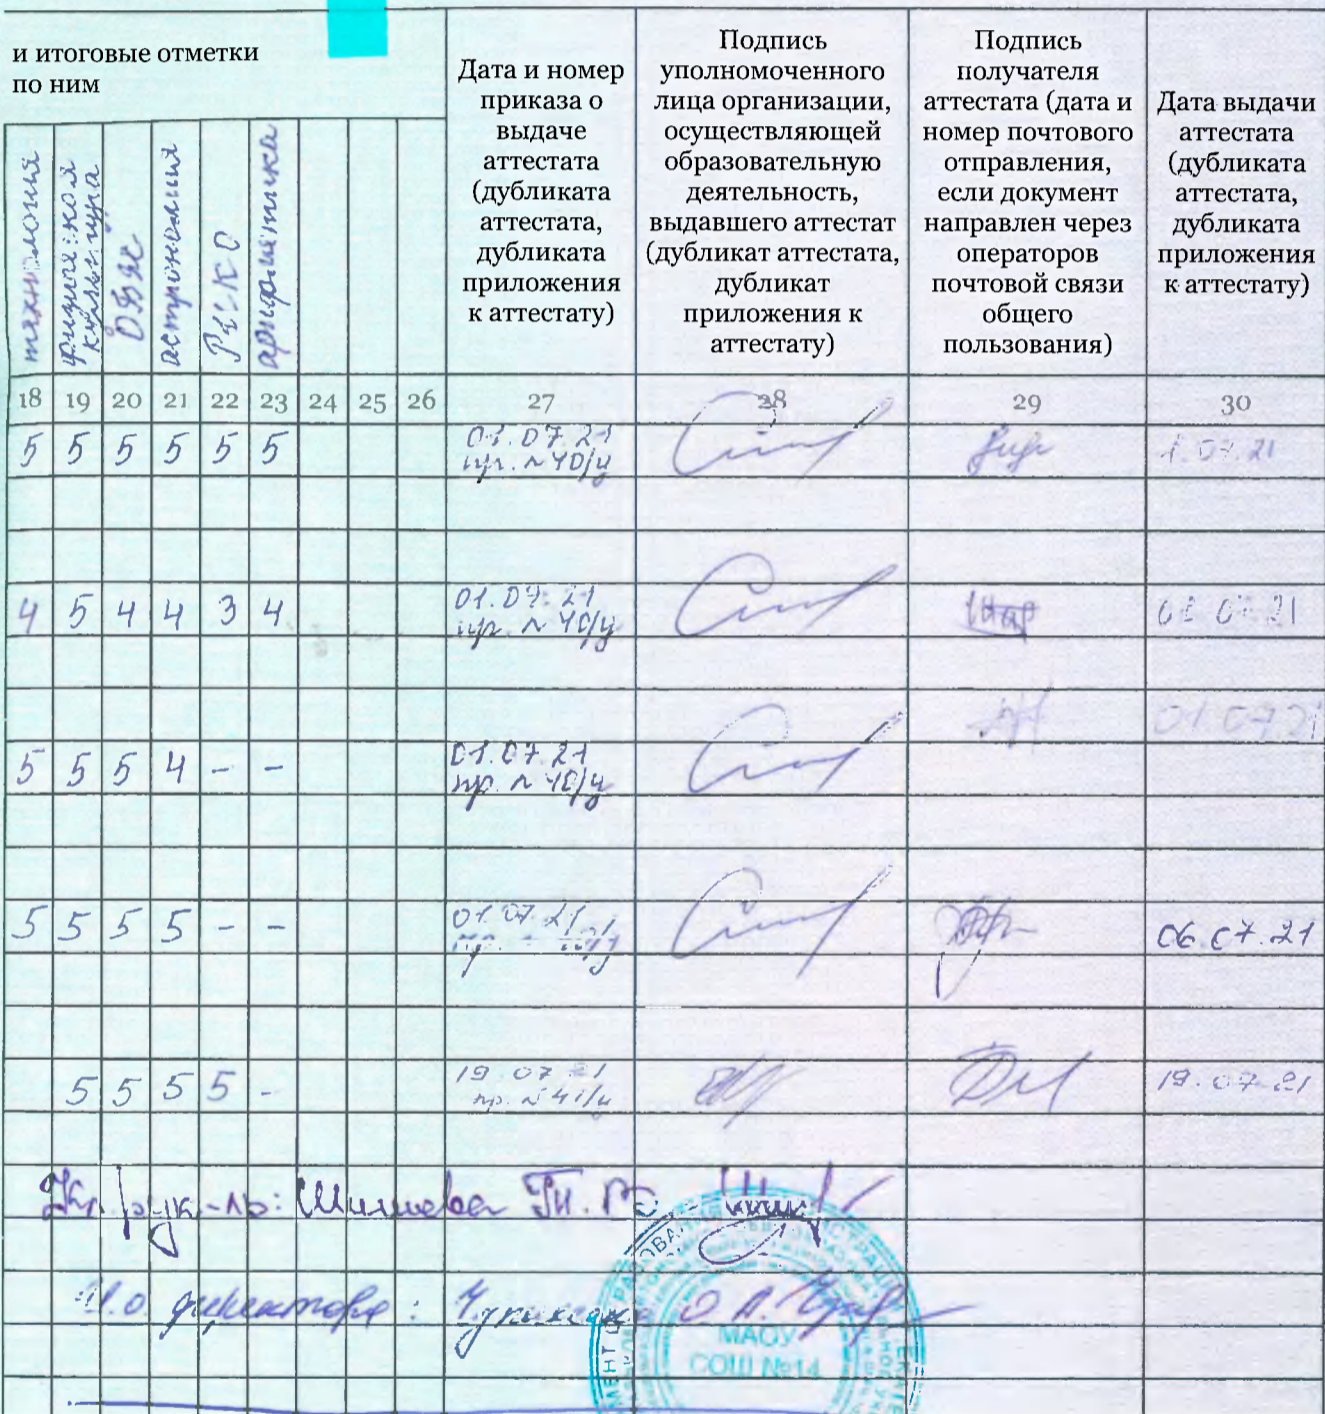 и итоговые отметки
по ним
технология
физическая
культура
ОБЖ
астрономия
РКО
арифметика
Дата и номер
приказа о
выдаче
аттестата
(дубликата
аттестата,
дубликата
приложения
к аттестату)
Подпись
уполномоченного
лица организации,
осуществляющей
образовательную
деятельность,
выдавшего аттестат
(дубликат аттестата,
дубликат
приложения к
аттестату)
Подпись
получателя
аттестата (дата и
номер почтового
отправления,
если документ
направлен через
операторов
почтовой связи
общего
пользования)
Дата выдачи
аттестата
(дубликата
аттестата,
дубликата
приложения
к аттестату)
18 19 20 21 22 23 24 25 26 27 28 29 30
5 5 5 5 5 5 01.07.21 1.07.21
пр. № 40/у
4 5 4 4 3 4 01.07.21 01.07.21
пр. № 40/у
01.07.21
5 5 5 4 - - 01.07.21
пр. № 40/у
5 5 5 5 - - 01.07.21 06.07.21
5 5 5 5 - 19.07.21 19.07.21
пр. № 41/у
Кл. рук-ль:
И.о. директора:
МАОУ
СОШ №14